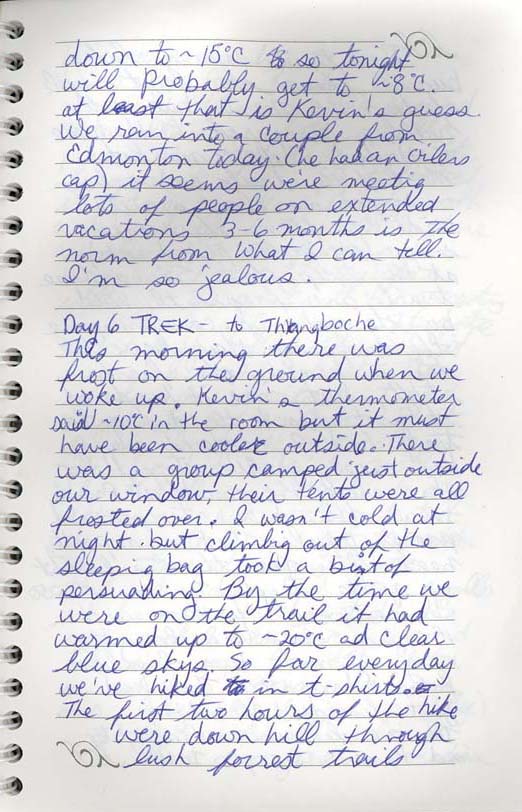 down to ~15°C so tonight
will probably get to ~8°C.
at least that is Kevin's guess.
We ran into a couple from
Edmonton today. (he had an Oilers
cap) it seems we're meetig
lots of people on extended
vacations 3-6 months is the
norm from what I can tell.
I'm so jealous.
Day 6 TREK - to Thyangboche
This morning there was
frost on the ground when we
woke up. Kevin's thermometer
said ~10°C in the room but it must
have been cooler outside. There
was a group camped just outside
our window, their tents were all
frosted over. I wasn't cold at
night but climbig out of the
sleepig bag took a bit of
persuading. By the time we
were on the trail it had
warmed up to ~20°C ad clear
blue skys. So far everyday
we've hiked in t-shirts.
The first two hours of the hike
were down hill through
lush forrest trails